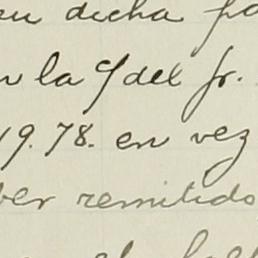 en dicha fa
n la c/ del fr.
19.78. en vez
ber remitido